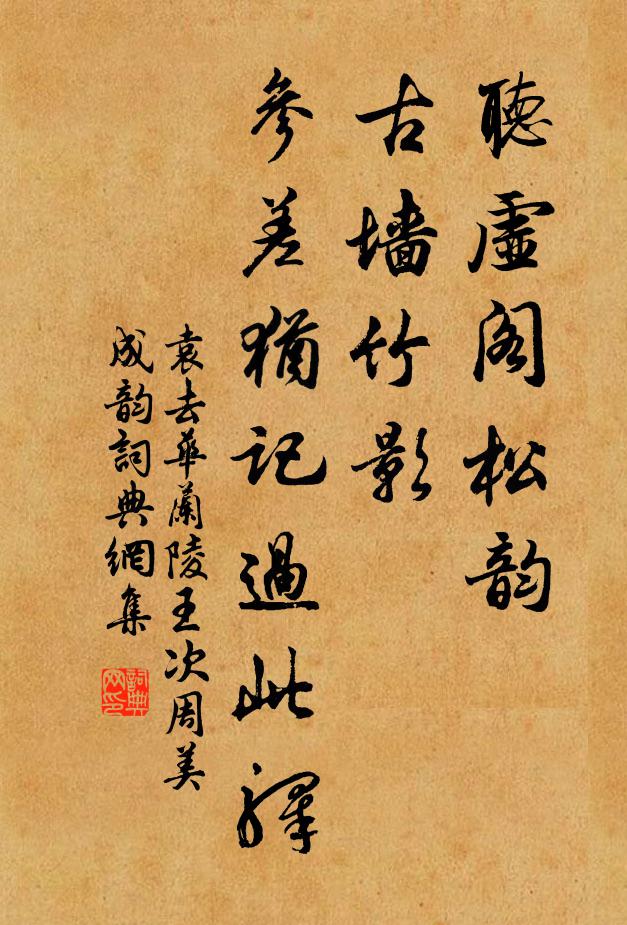 聽虛閣松韵
古墻竹影
參差猶記過此驛
袁去華蘭陵王次周美
成韵詞典網集
詞典網印